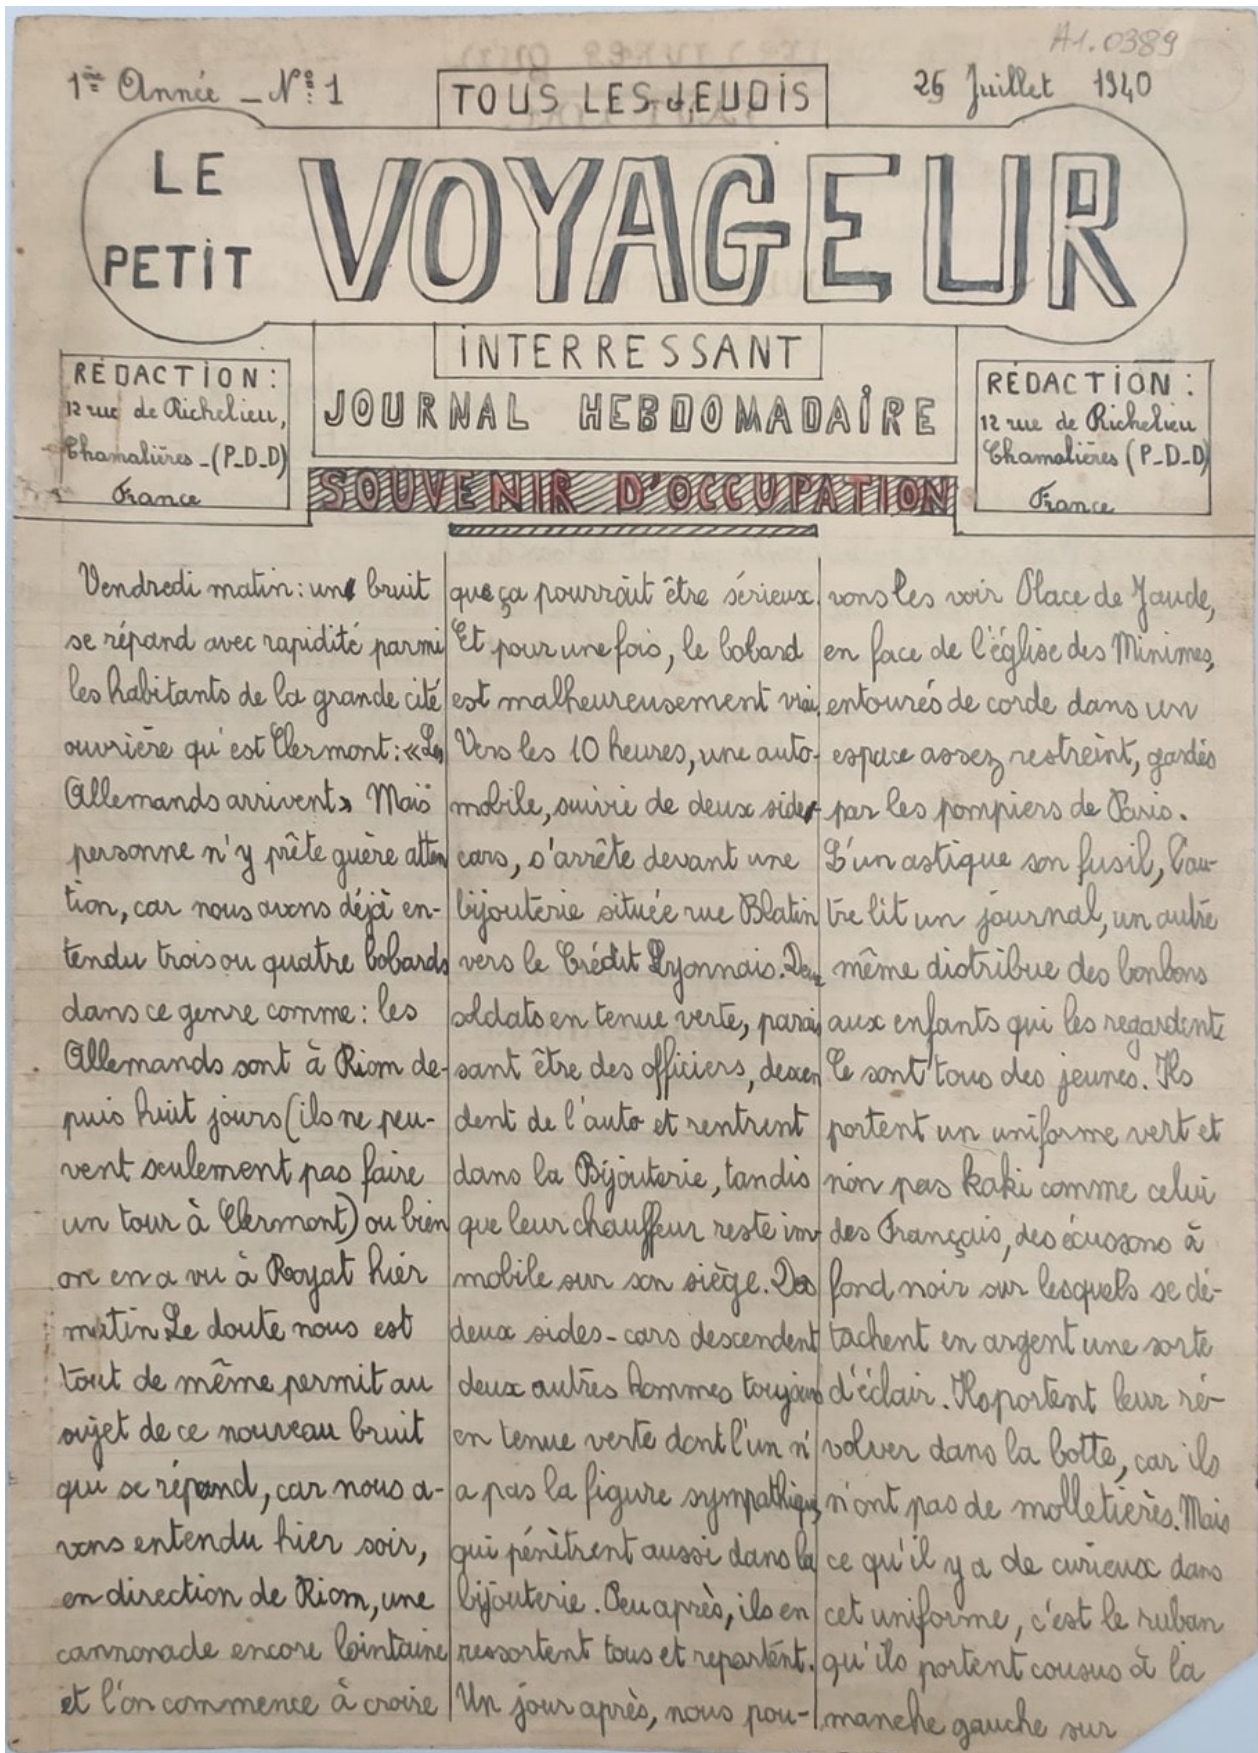 A1.0389
1ère Année _ Nº 1
TOUS LES JEUDIS
25 Juillet 1940
LE
PETIT
VOYAGEUR
INTERRESSANT
JOURNAL HEBDOMADAIRE
RÉDACTION :
12 rue de Richelieu,
Chamalières - (P-D-D)
France
RÉDACTION :
12 rue de Richelieu
Chamalières (P-D-D)
France
SOUVENIR D'OCCUPATION
Vendredi matin : un bruit
se répand avec rapidité parmi
les habitants de la grande cité
ouvrière qu'est Clermont : «Les
Allemands arrivent» Mais
personne n'y prête guère atten
tion, car nous avons déjà en-
tendu trois ou quatre bobards
dans ce genre comme : les
Allemands sont à Riom de-
puis huit jours (ils ne peu-
vent seulement pas faire
un tour à Clermont) ou bien
on en a vu à Royat hier
matin Le doute nous est
tout de même permit au
sujet de ce nouveau bruit
qui se répand, car nous a-
vons entendu hier soir,
en direction de Riom, une
cannonade encore lointaine
et l'on commence à croire
que ça pourrait être sérieux.
Et pour une fois, le bobard
est malheureusement vrai.
Vers les 10 heures, une auto-
mobile, suivie de deux side-
cars, s'arrête devant une
bijouterie située rue Blatin
vers le Crédit Lyonnais. Deux
soldats en tenue verte, parais
sant être des officiers, descen
dent de l'auto et rentrent
dans la Bijouterie, tandis
que leur chauffeur reste im-
mobile sur son siège. Des
deux sides-cars descendent
deux autres hommes toujours
en tenue verte dont l'un n'
a pas la figure sympathique,
qui pénètrent aussi dans la
bijouterie. Peu après, ils en
ressortent tous et repartent.
Un jour après, nous pou-
vons les voir Place de Jaude,
en face de l'église des Minimes,
entourés de corde dans un
espace assez restreint, gardés
par les pompiers de Paris.
L'un astique son fusil, l'au-
tre lit un journal, un autre
même distribue des bonbons
aux enfants qui les regardent
Ce sont tous des jeunes. Ils
portent un uniforme vert et
non pas kaki comme celui
des Français, des écussons à
fond noir sur lesquels se dé-
tachent en argent une sorte
d'éclair. Ils portent leur ré-
volver dans la botte, car ils
n'ont pas de molletières. Mais
ce qu'il y a de curieux dans
cet uniforme, c'est le ruban
qu'ils portent cousus à la
manche gauche sur